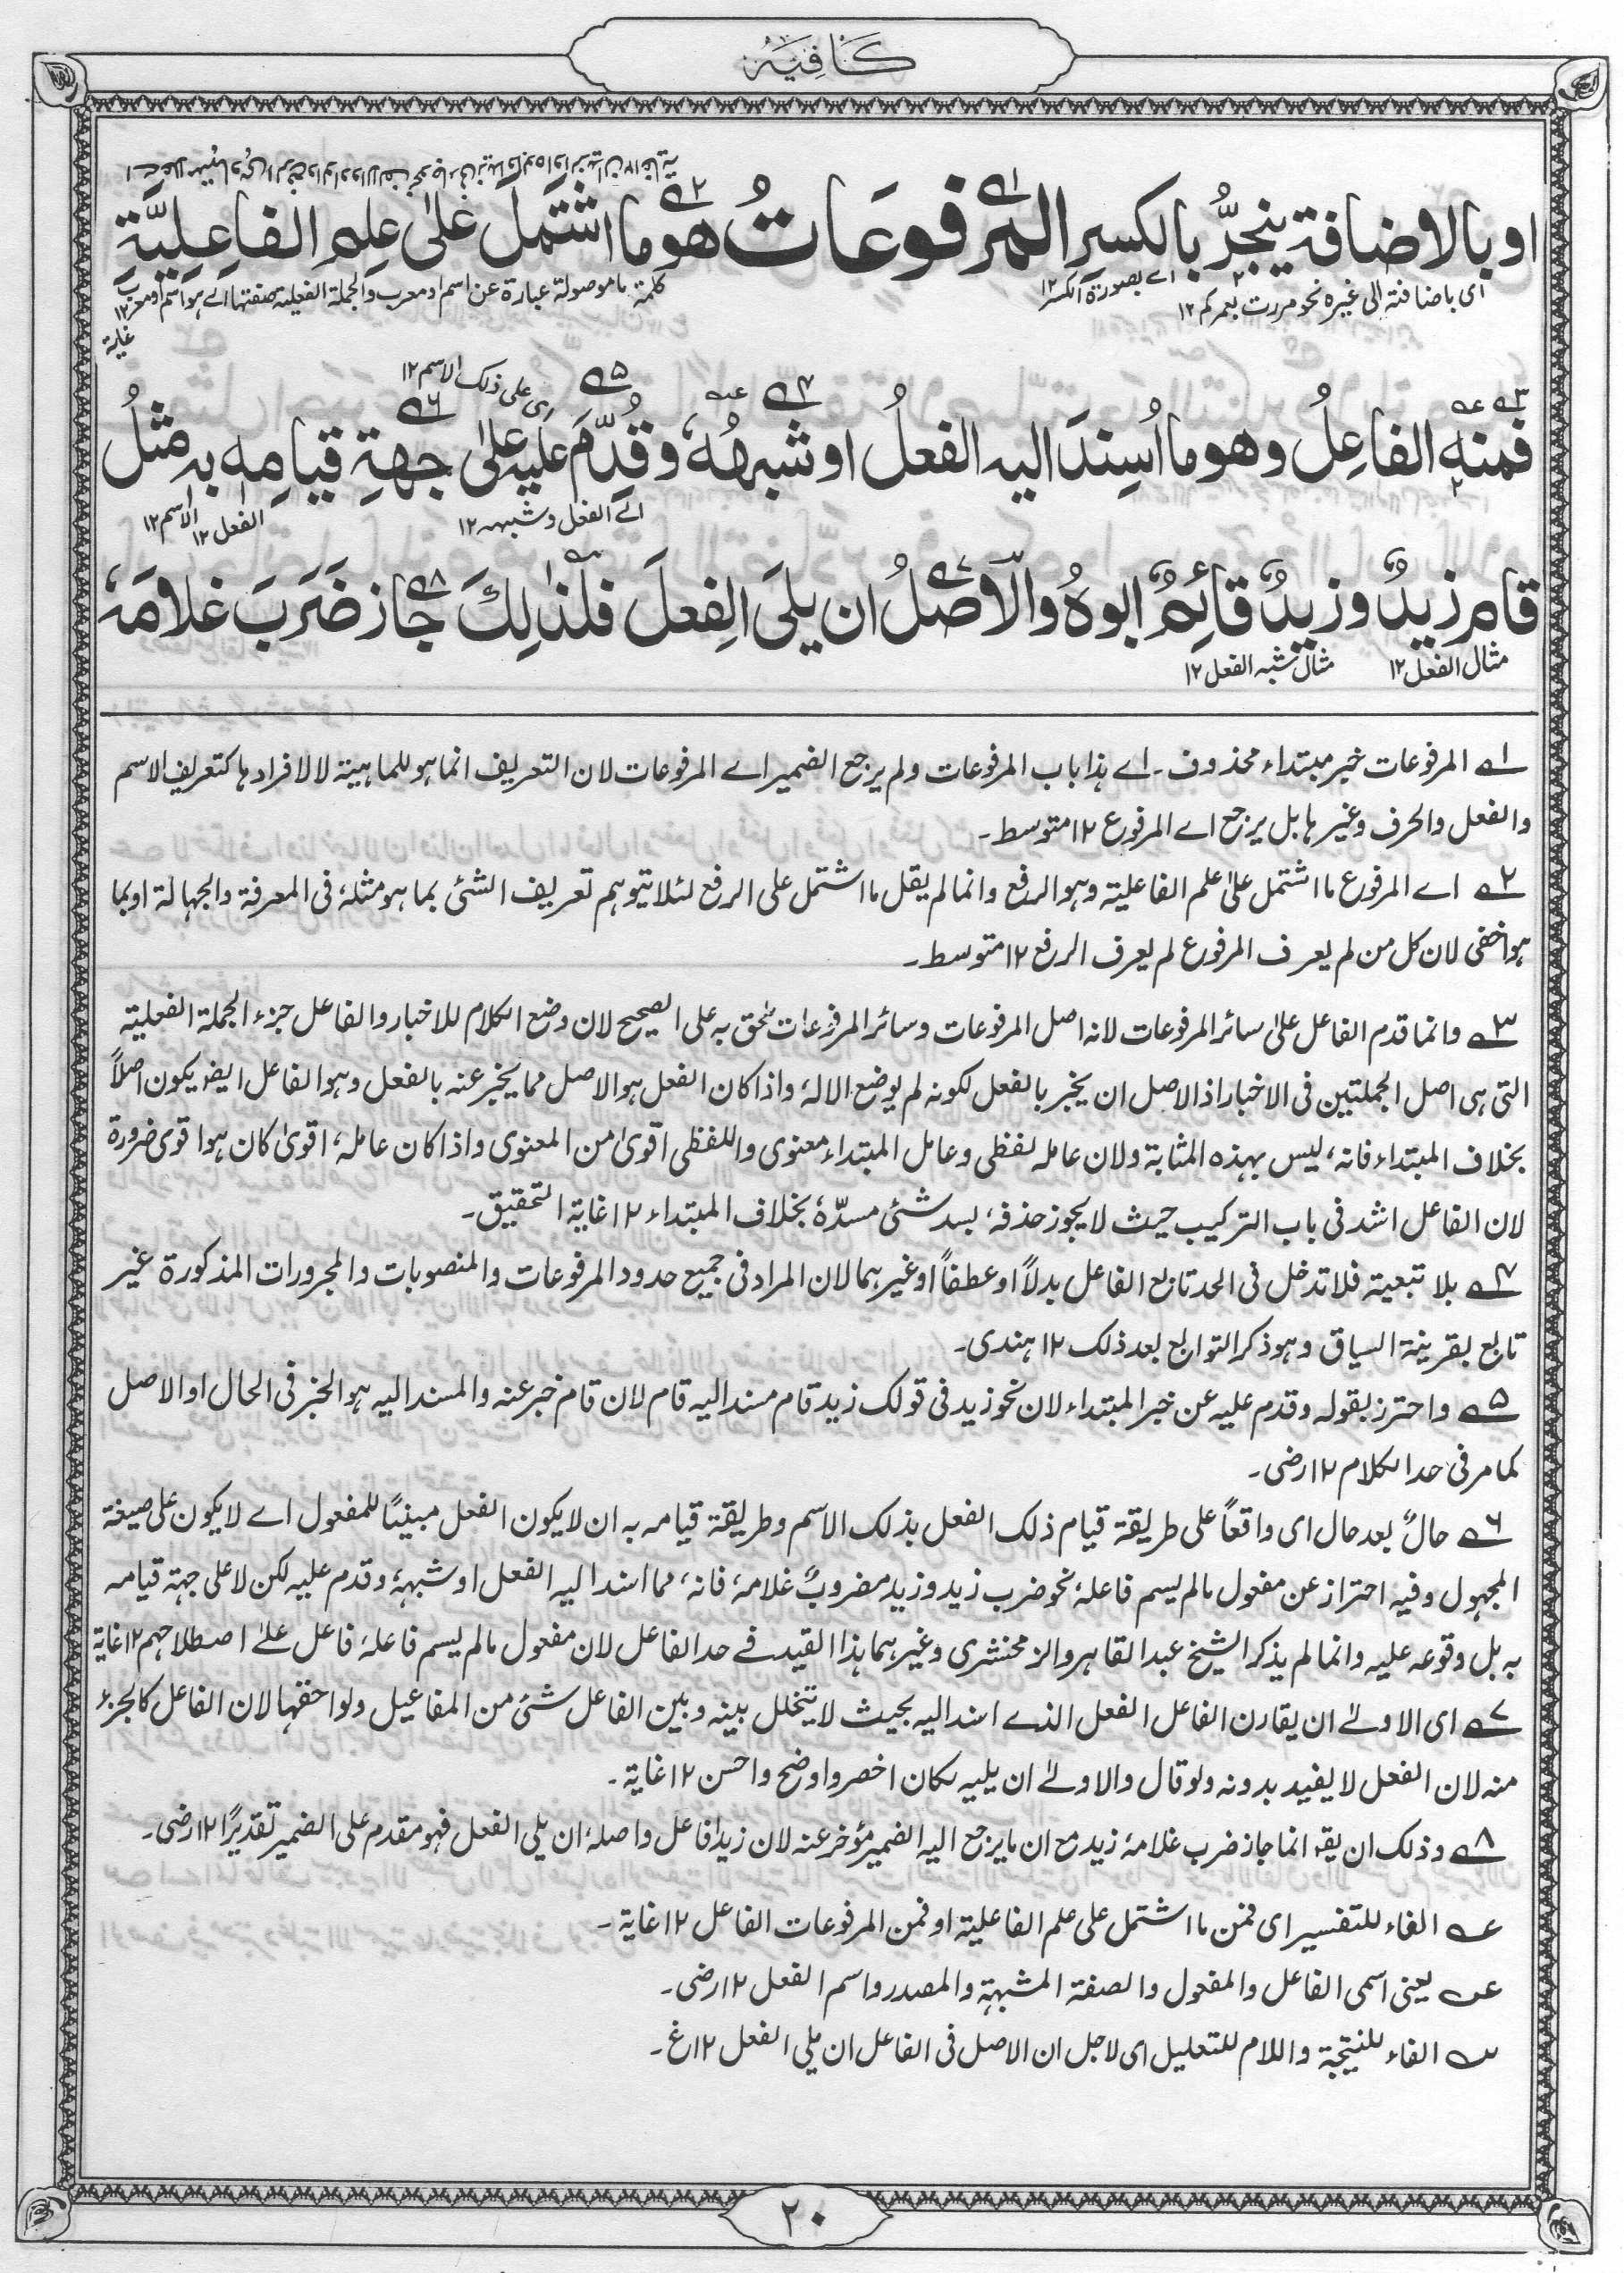 كَافِيَه
او بالاضافة ينجرُّ بالكسر المرفوعَاتُ هو ما اشتَمَلَ عَلىٰ عَلمِ الفاعِليَّة
اى باضافته الى غيره نحو مررت بعمركم ١٢
اے بصورة الكسر ١٢
كلمة ما موصولة عبارة عن اسم او معرب والجملة الفعلية صفتها اے هو اسم او معرب ١٢
غاية
اى على ذلك الاسم ١٢
فمنه الفاعِلُ وهو ما اُسنِدَ اليه الفعلُ او شبههُ وقُدِّمَ عَلَيه علىٰ جهةِ قيامِهٖ به مثلُ
اے الفعل وشبهه ١٢
الفعل ١٢
الاسم ١٢
قام زيدٌ وزيدٌ قائِمٌ ابوهُ والاَصلُ ان يلىَ الِفعلَ فلذٰلِكَ جَازَ ضَرَبَ غلامَهٗ
مثال الفعل ١٢
مثال شبه الفعل ١٢
١ المرفوعات خبر مبتداء محذوف۔ اے هذا باب المرفوعات ولم يرجع الضمير اے المرفوعات لان التعريف انما هو للماهية لا لافرادها كتعريف الاسم
والفعل والحرف وغيرها بل يرجع اے المرفوع ١٢ متوسط۔
٢ اے المرفوع ما اشتمل علىٰ علم الفاعلية وهو الرفع وانما لم يقل ما اشتمل على الرفع لئلا يتوهم تعريف الشئ بما هو مثلهٗ فى المعرفة والجهالة او بما
هو اخفى لان كل من لم يعرف المرفوع لم يعرف الرفع ١٢ متوسط۔
٣ وانما قدم الفاعل علىٰ سائر المرفوعات لانه اصل المرفوعات وسائر المرفوعات ملحق به على الصحيح لان وضع الكلام للاخبار والفاعل جزء الجملة الفعلية
التى هى اصل الجملتين فى الاخبار اذ الاصل ان يخبر بالفعل لكونه لم يوضع الا لهٗ واذا كان الفعل هو الاصل مما يخبر عنه بالفعل وهو الفاعل ايضا يكون اصلاً
بخلاف المبتداء فانهٗ ليس بهذه المثابة ولان عامله لفظى وعامل المبتداء معنوى واللفظى اقوىٰ من المعنوى واذا كان عاملهٗ اقوىٰ كان هو اقوى ضرورة
لان الفاعل اشد فى باب التركيب حيث لا يجوز حذفهٗ بسد شئ مسدّهٗ بخلاف المبتداء ١٢ غاية التحقيق۔
٤ بلا تبعية فلا تدخل فى الحد تابع الفاعل بدلاً او عطفاً او غيرهما لان المراد فى جميع حدود المرفوعات والمنصوبات والمجرورات المذكورة غير
تابع بقرينة السياق وهو ذكر التوابع بعد ذلك ١٢ هندى۔
٥ واحترز بقوله وقدم عليه عن خبر المبتداء لان نحو زيد فى قولك زيد قام مسند اليه قام لان قام خبر عنه والمسند اليه هو الخبر فى الحال او الاصل
كما مر فى حد الكلام ١٢ رضى۔
٦ حالٌ بعد حال اى واقعاً على طريقة قيام ذلك الفعل بذلك الاسم وطريقة قيامه به ان لا يكون الفعل مبنيًا للمفعول اے لا يكون على صيغة
المجهول وفيه احتراز عن مفعول ما لم يسم فاعلهٗ نحو ضرب زيد وزيد مضروبٌ غلامهٗ فانهٗ مما اسند اليه الفعل او شبههٗ وقدم عليه لكن لا على جهة قيامه
به بل وقوعه عليه وانما لم يذكر الشيخ عبد القاهر والزمخشرى وغيرهما هذا القيد فے حد الفاعل لان مفعول ما لم يسم فاعلهٗ فاعل علےٰ اصطلاحهم ١٢ غاية
٧ اى الاولےٰ ان يقارن الفاعل الفعل الذے اسند اليه بحيث لا يتخلل بينه وبين الفاعل شئ من المفاعيل ولواحقها لان الفاعل كالجزء
منه لان الفعل لا يفيد بدونه ولو قال والاولےٰ ان يليه لكان اخصر واوضح واحسن ١٢ غاية۔
٨ وذلك ان يقو انما جاز ضرب غلامهٗ زيد مع ان ما يرجع اليه الضمير مؤخر عنه لان زيدا فاعل واصلهٗ ان يلى الفعل فهو مقدم على الضمير تقديرًا ١٢ رضى۔
عہ الفاء للتفسير اى فمن ما اشتمل على علم الفاعلية او فمن المرفوعات الفاعل ١٢ غاية۔
عہ يعنى اسمى الفاعل والمفعول والصفة المشبهة والمصدر واسم الفعل ١٢ رضى۔
سہ الفاء للنتيجة واللام للتعليل اى لاجل ان الاصل فى الفاعل ان يلى الفعل ١٢ غ۔
٢٠